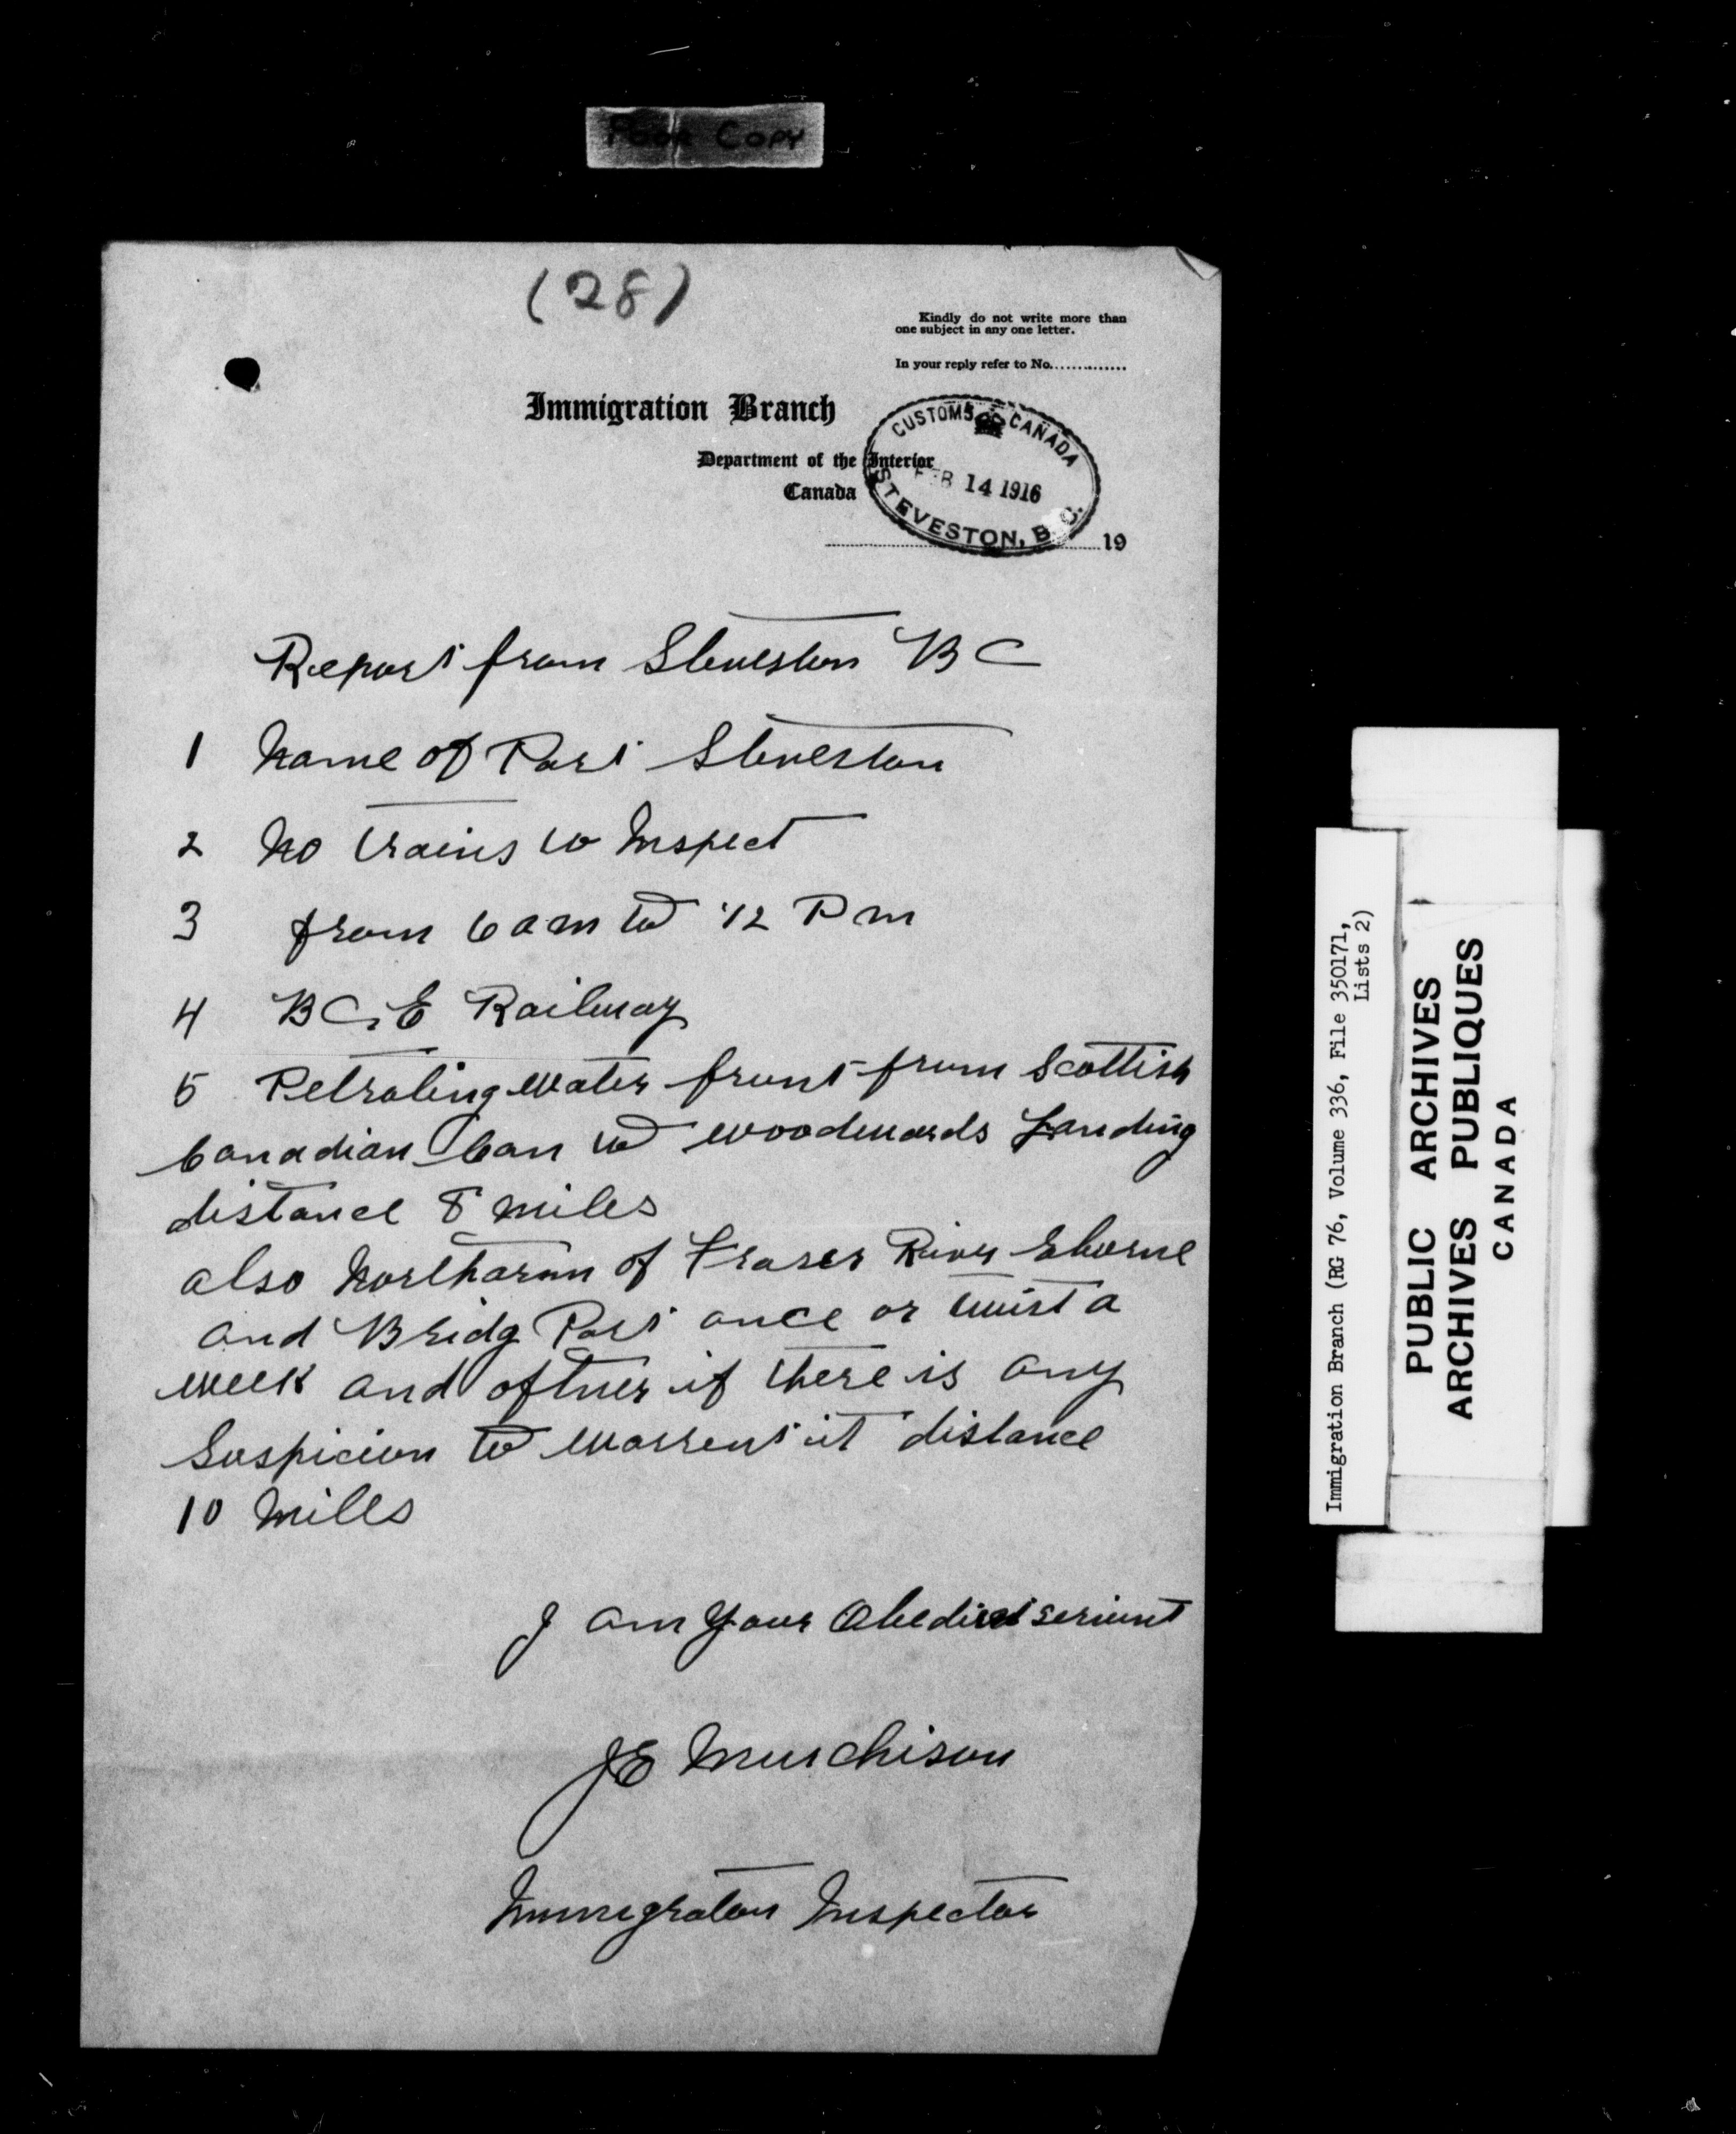 Poor Copy
(28)
Kindly do not write more than
one subject in any one letter.
In your reply refer to No..............
Immigration Branch
Department of the Interior
Canada
CUSTOMS CANADA
FEB 14 1916
STEVESTON, B.C.
19
Report from Steveston BC
1 Name of Port Steveston
2 No trains to Inspect
3 from 6 am to 12 Pm
4 BC.E Railway
5 Petroling water front from Scottish
Canadian Can to Woodwards Landing
distance 8 miles
also Northarm of Fraser River Eburne
and Bridg Port once or twist a
week and oftner if there is any
Suspicion to warrent it distance
10 Milles
I am Your Obedient servunt
JE Murchison
Immigraton Inspector
Immigration Branch (RG 76, Volume 336, File 350171,
Lists 2)
PUBLIC ARCHIVES
ARCHIVES PUBLIQUES
CANADA